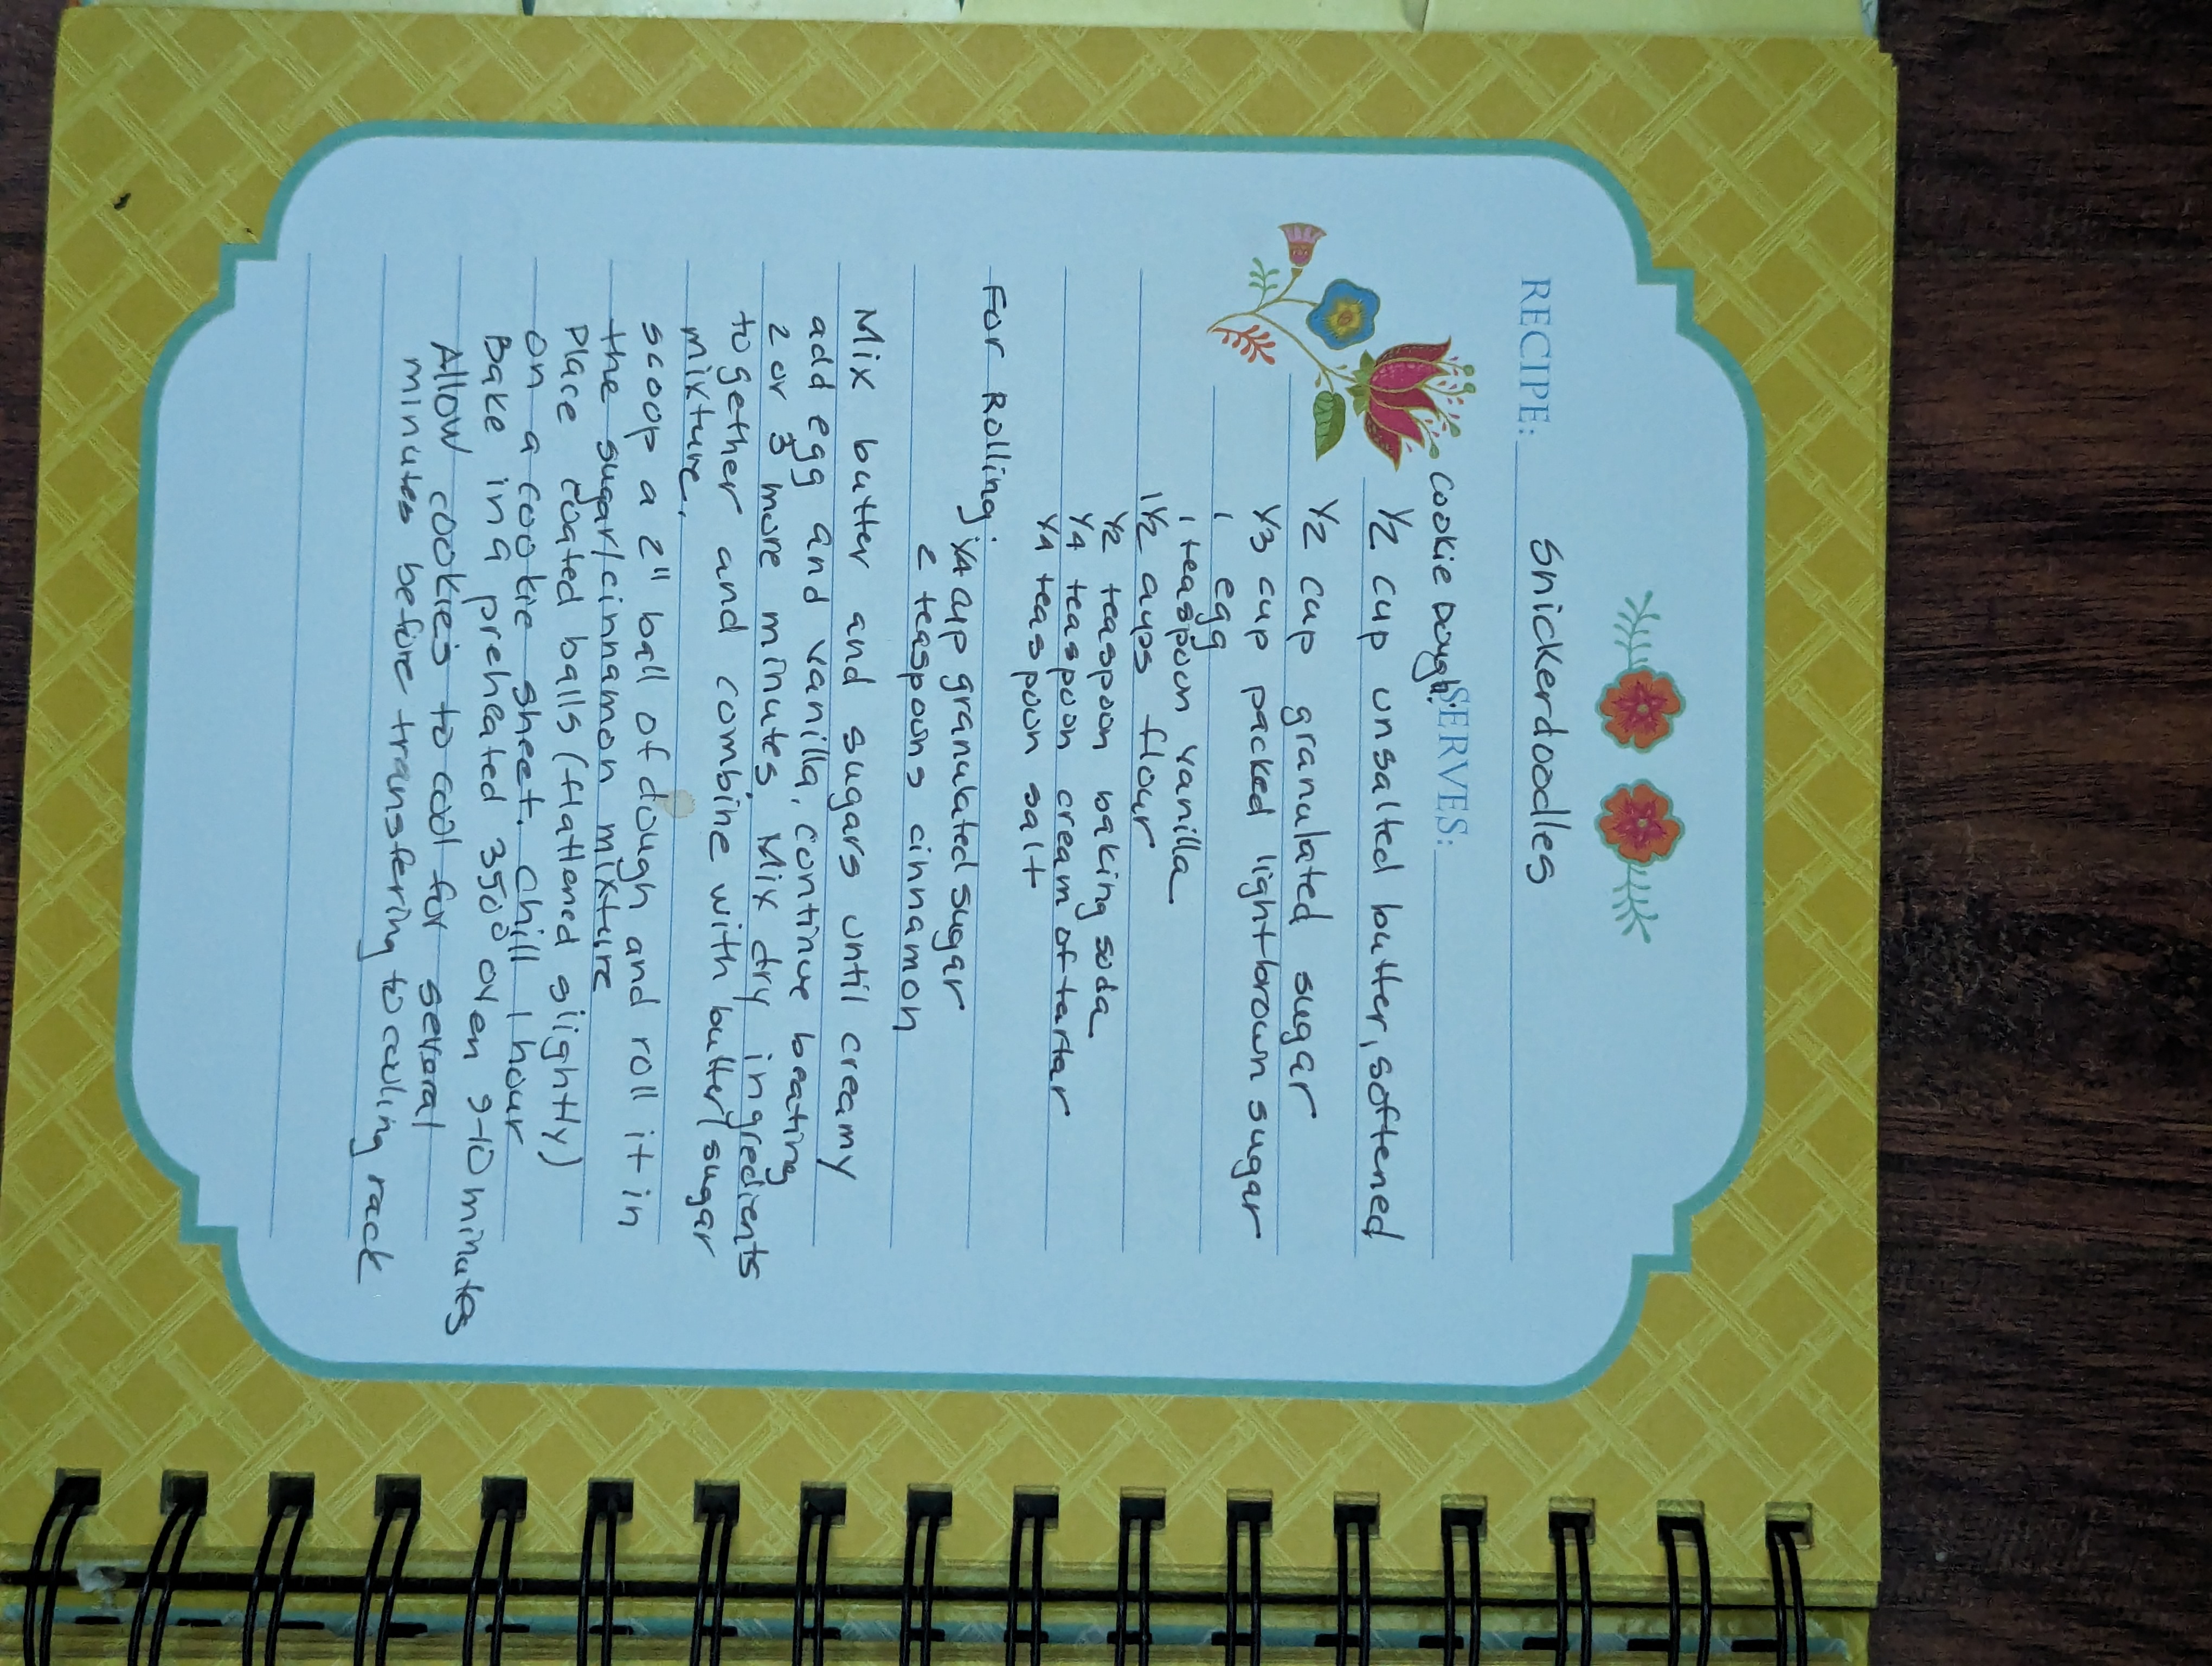 RECIPE: Snickerdoodles
Cookie Dough: SERVES:
1/2 cup unsalted butter, softened
1/2 cup granulated sugar
1/3 cup packed light brown sugar
1 egg
1 teaspoon vanilla
1 1/2 cups flour
1/2 teaspoon baking soda
1/4 teaspoon cream of tartar
1/4 teaspoon salt
For Rolling:
1/4 cup granulated sugar
2 teaspoons cinnamon
Mix butter and sugars until creamy
add egg and vanilla, continue beating
2 or 3 more minutes. Mix dry ingredients
together and combine with butter/sugar
mixture.
scoop a 2" ball of dough and roll it in
the sugar/cinnamon mixture
Place coated balls (flattened slightly)
on a cookie sheet. Chill 1 hour
Bake in a preheated 350° oven 9-10 minutes
Allow cookies to cool for several
minutes before transfering to cooling rack